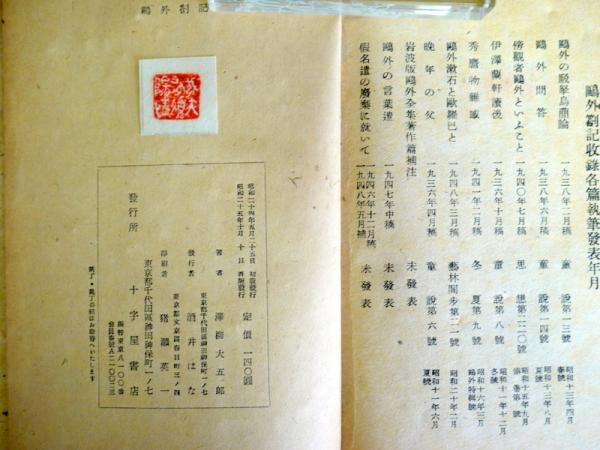 鷗外剳記收錄各篇執筆發表年月
鷗外の 一九三八年二月稿 童說第一三號 昭和十三年四月春號
鷗外問答 一九三八年六月稿 童說第一四號 昭和十三年八月夏號
傍觀者鷗外といふこと 一九四〇年七月稿 思想第二二〇號 昭和十五年九月
伊澤蘭軒讀後 一九三六年十月稿 童說第八號 昭和十一年十二月冬號
秀麿物雜感 一九四一年二月稿 冬夏第九號 昭和十六年三月鷗外特輯號
鷗外漱石と歐羅巴と 一九四八年三月稿 藝林閒步第二二號
晩年の父 一九三六年四月稿 童說第六號 昭和十一年六月夏號
岩波版鷗外全集著作篇補注 未發表
鷗外の言葉遣 一九四七年中稿 未發表
假名遣の廢棄に就いて 一九四六年十二月稿 一九四八年五月補 未發表
鷗外剳記
昭和二十四年五月二十五日 初版發行
昭和二十五年十月十日 再版發行
定價一四〇圓
著者 澤柳大五郎
東京都千代田區神田神保町一ノ七
發行者 酒井はな
東京都文京區春日町三ノ四
印刷者 英一
東京都千代田區神田神保町一ノ七
發行所 十字屋書店
振替東京八一〇〇番
會員番號A二一〇〇二三
亂丁・落丁の際はお取替へいたします